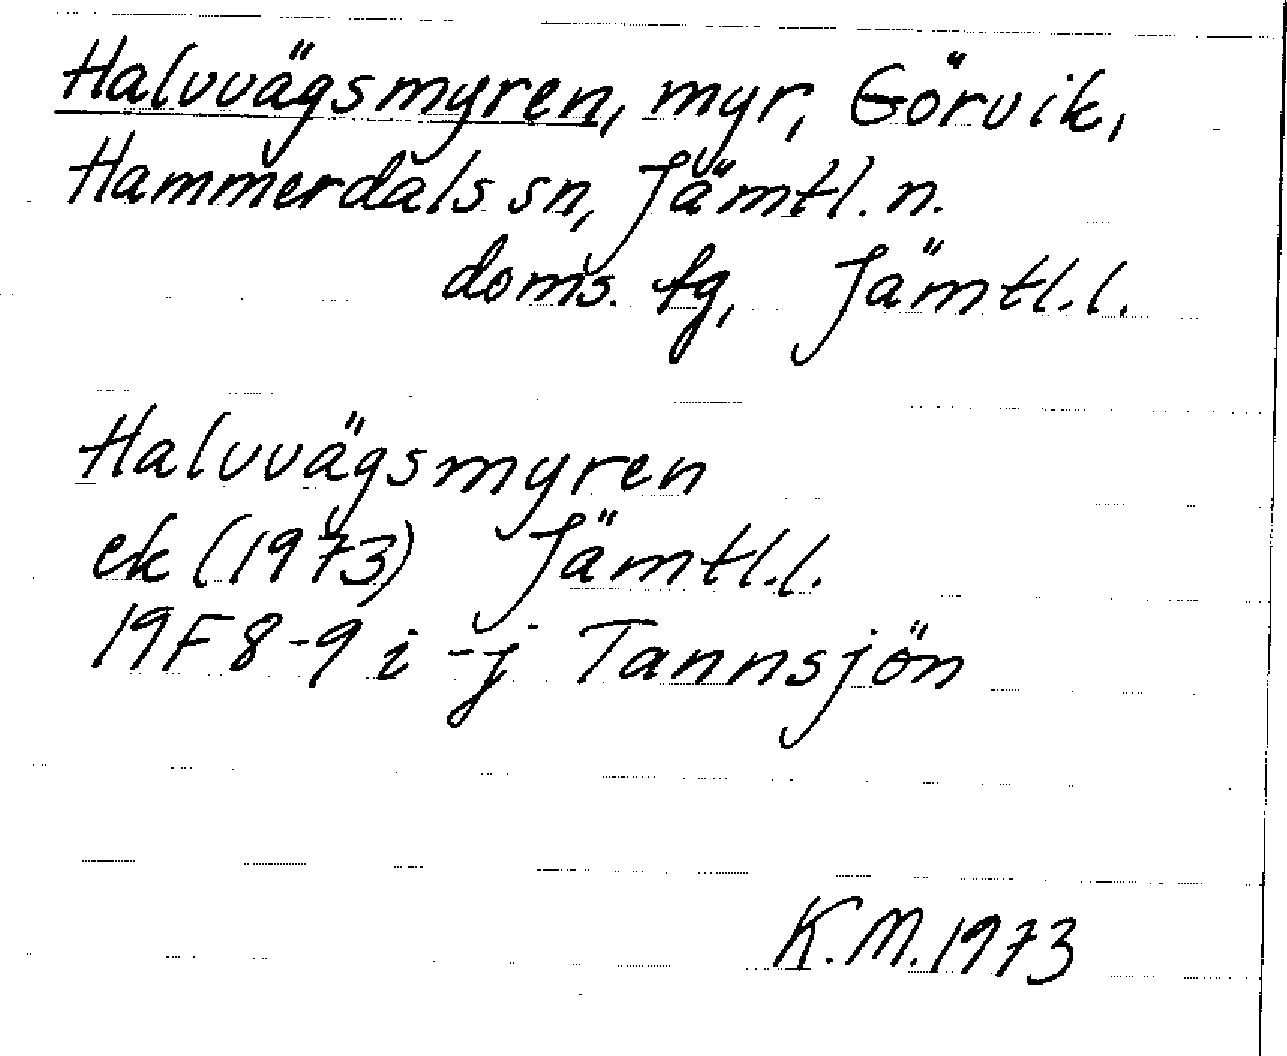 Halvvägsmyren, myr, Görvik,
Hammerdals sn, Jämtl. n.
doms. fg, Jämtl. l.
Halvvägsmyren
ek (1973) Jämtl. l.
19F 8-9 i-j Tannsjön
K.M. 1973